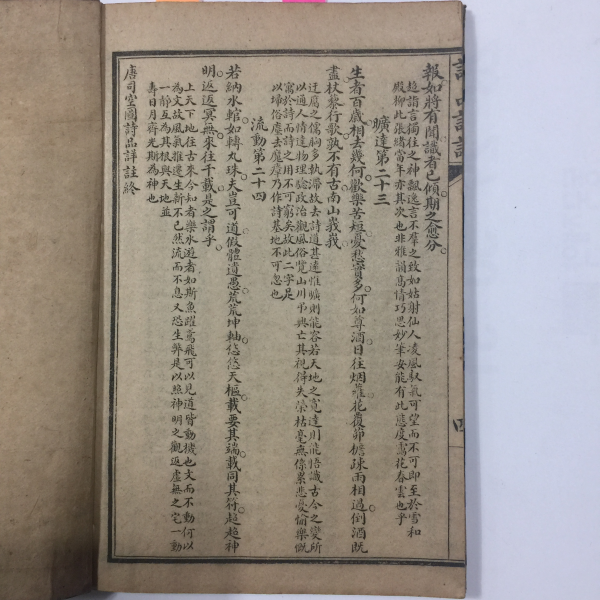 報如將有聞識者已傾期之愈分
超詣言獨往之神飄逸言不羣之致如姑射仙人凌風馭氣可望而不可卽至於雪和
殿柳此張緒當年亦其次也非雅韻高情巧思妙筆安能有此態度鶯花春雲也乎
曠達第二十三
生者百歲相去幾何歡樂苦短憂愁實多何如尊酒日往烟蘿花覆茆檐疎雨相過倒酒旣
盡杖藜行歌孰不有古南山峩峩
迂腐之儒胸多執滯故去詩道甚遠惟曠則能容若天地之寬達則能悟識古今之變所
以通人情達物理驗政治觀風俗覽山川弔興亡其視得失榮枯毫無係累悲憂愉樂慨
寓於詩而詩之用不可窮矣故此二字足
以埽俗塵去魔障乃作詩基地不可忽也
流動第二十四
若納水輨如轉丸珠夫豈可道假體遺愚荒荒坤軸悠悠天樞載要其端載同其符超超神
明返返冥無來往千載是之謂乎
上天下地往古來今知者樂水逝者如斯魚躍鳶飛可以見道皆動機也文而不動何以
為文故風氣推遷生新不已然流而不息又恐生弊是以照神明之觀返虛無之宅一動
一靜互為其根與天地並
壽日月齊光斯為神也
唐司空圖詩品詳註終